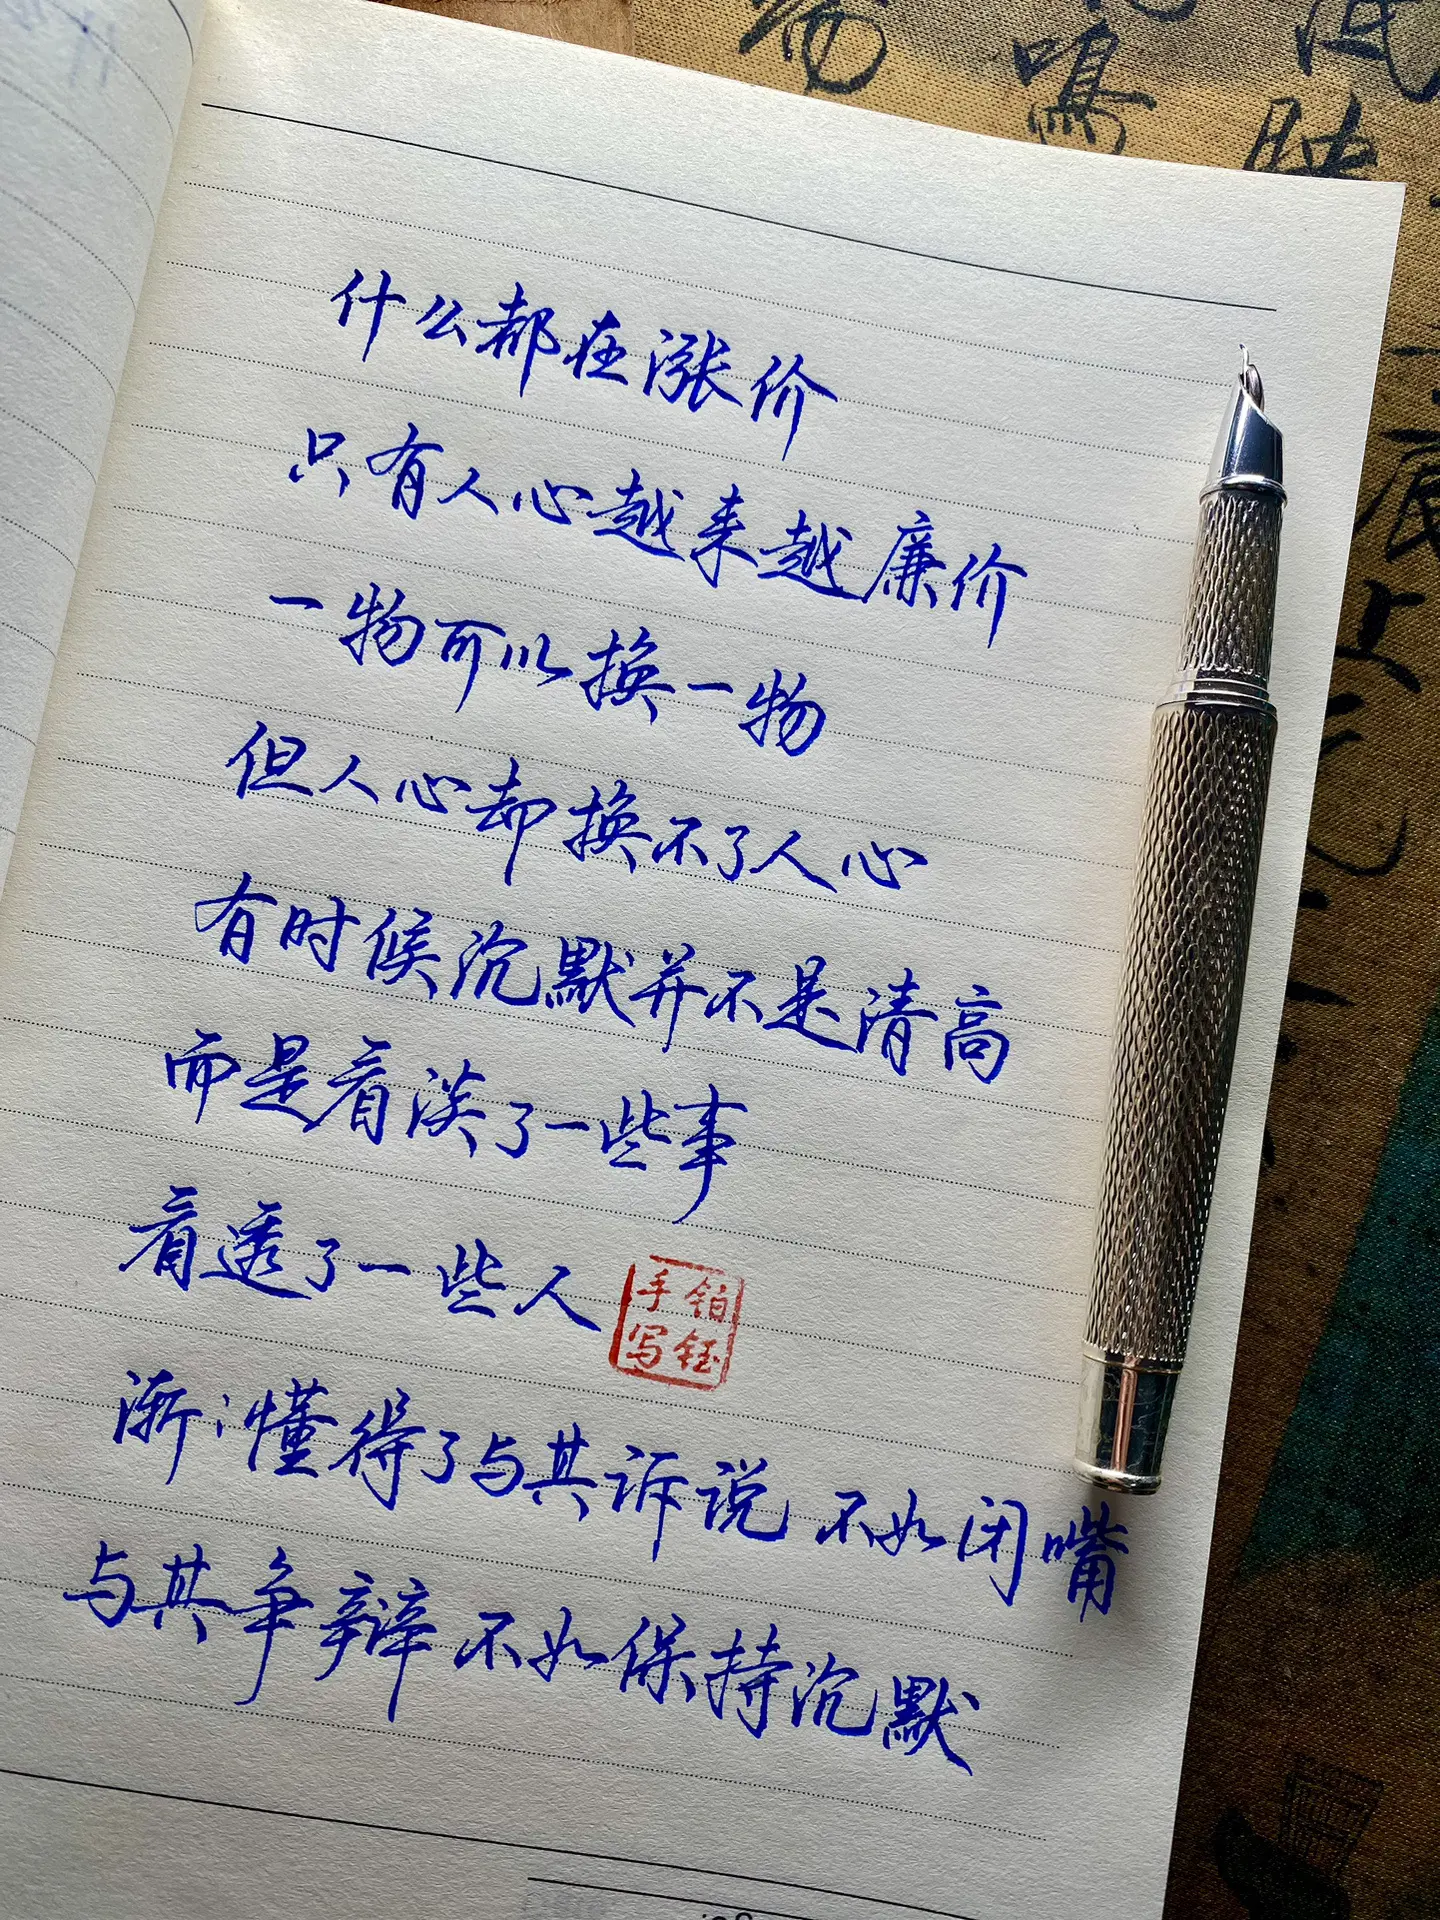 什么都在涨价
只有人心越来越廉价
一物可以换一物
但人心却换不了人心
有时候沉默并不是清高
而是看淡了一些事
看透了一些人
铂钰
手写
渐㇀懂得了与其诉说 不如闭嘴
与其争辩 不如保持沉默
鸣
映
藏